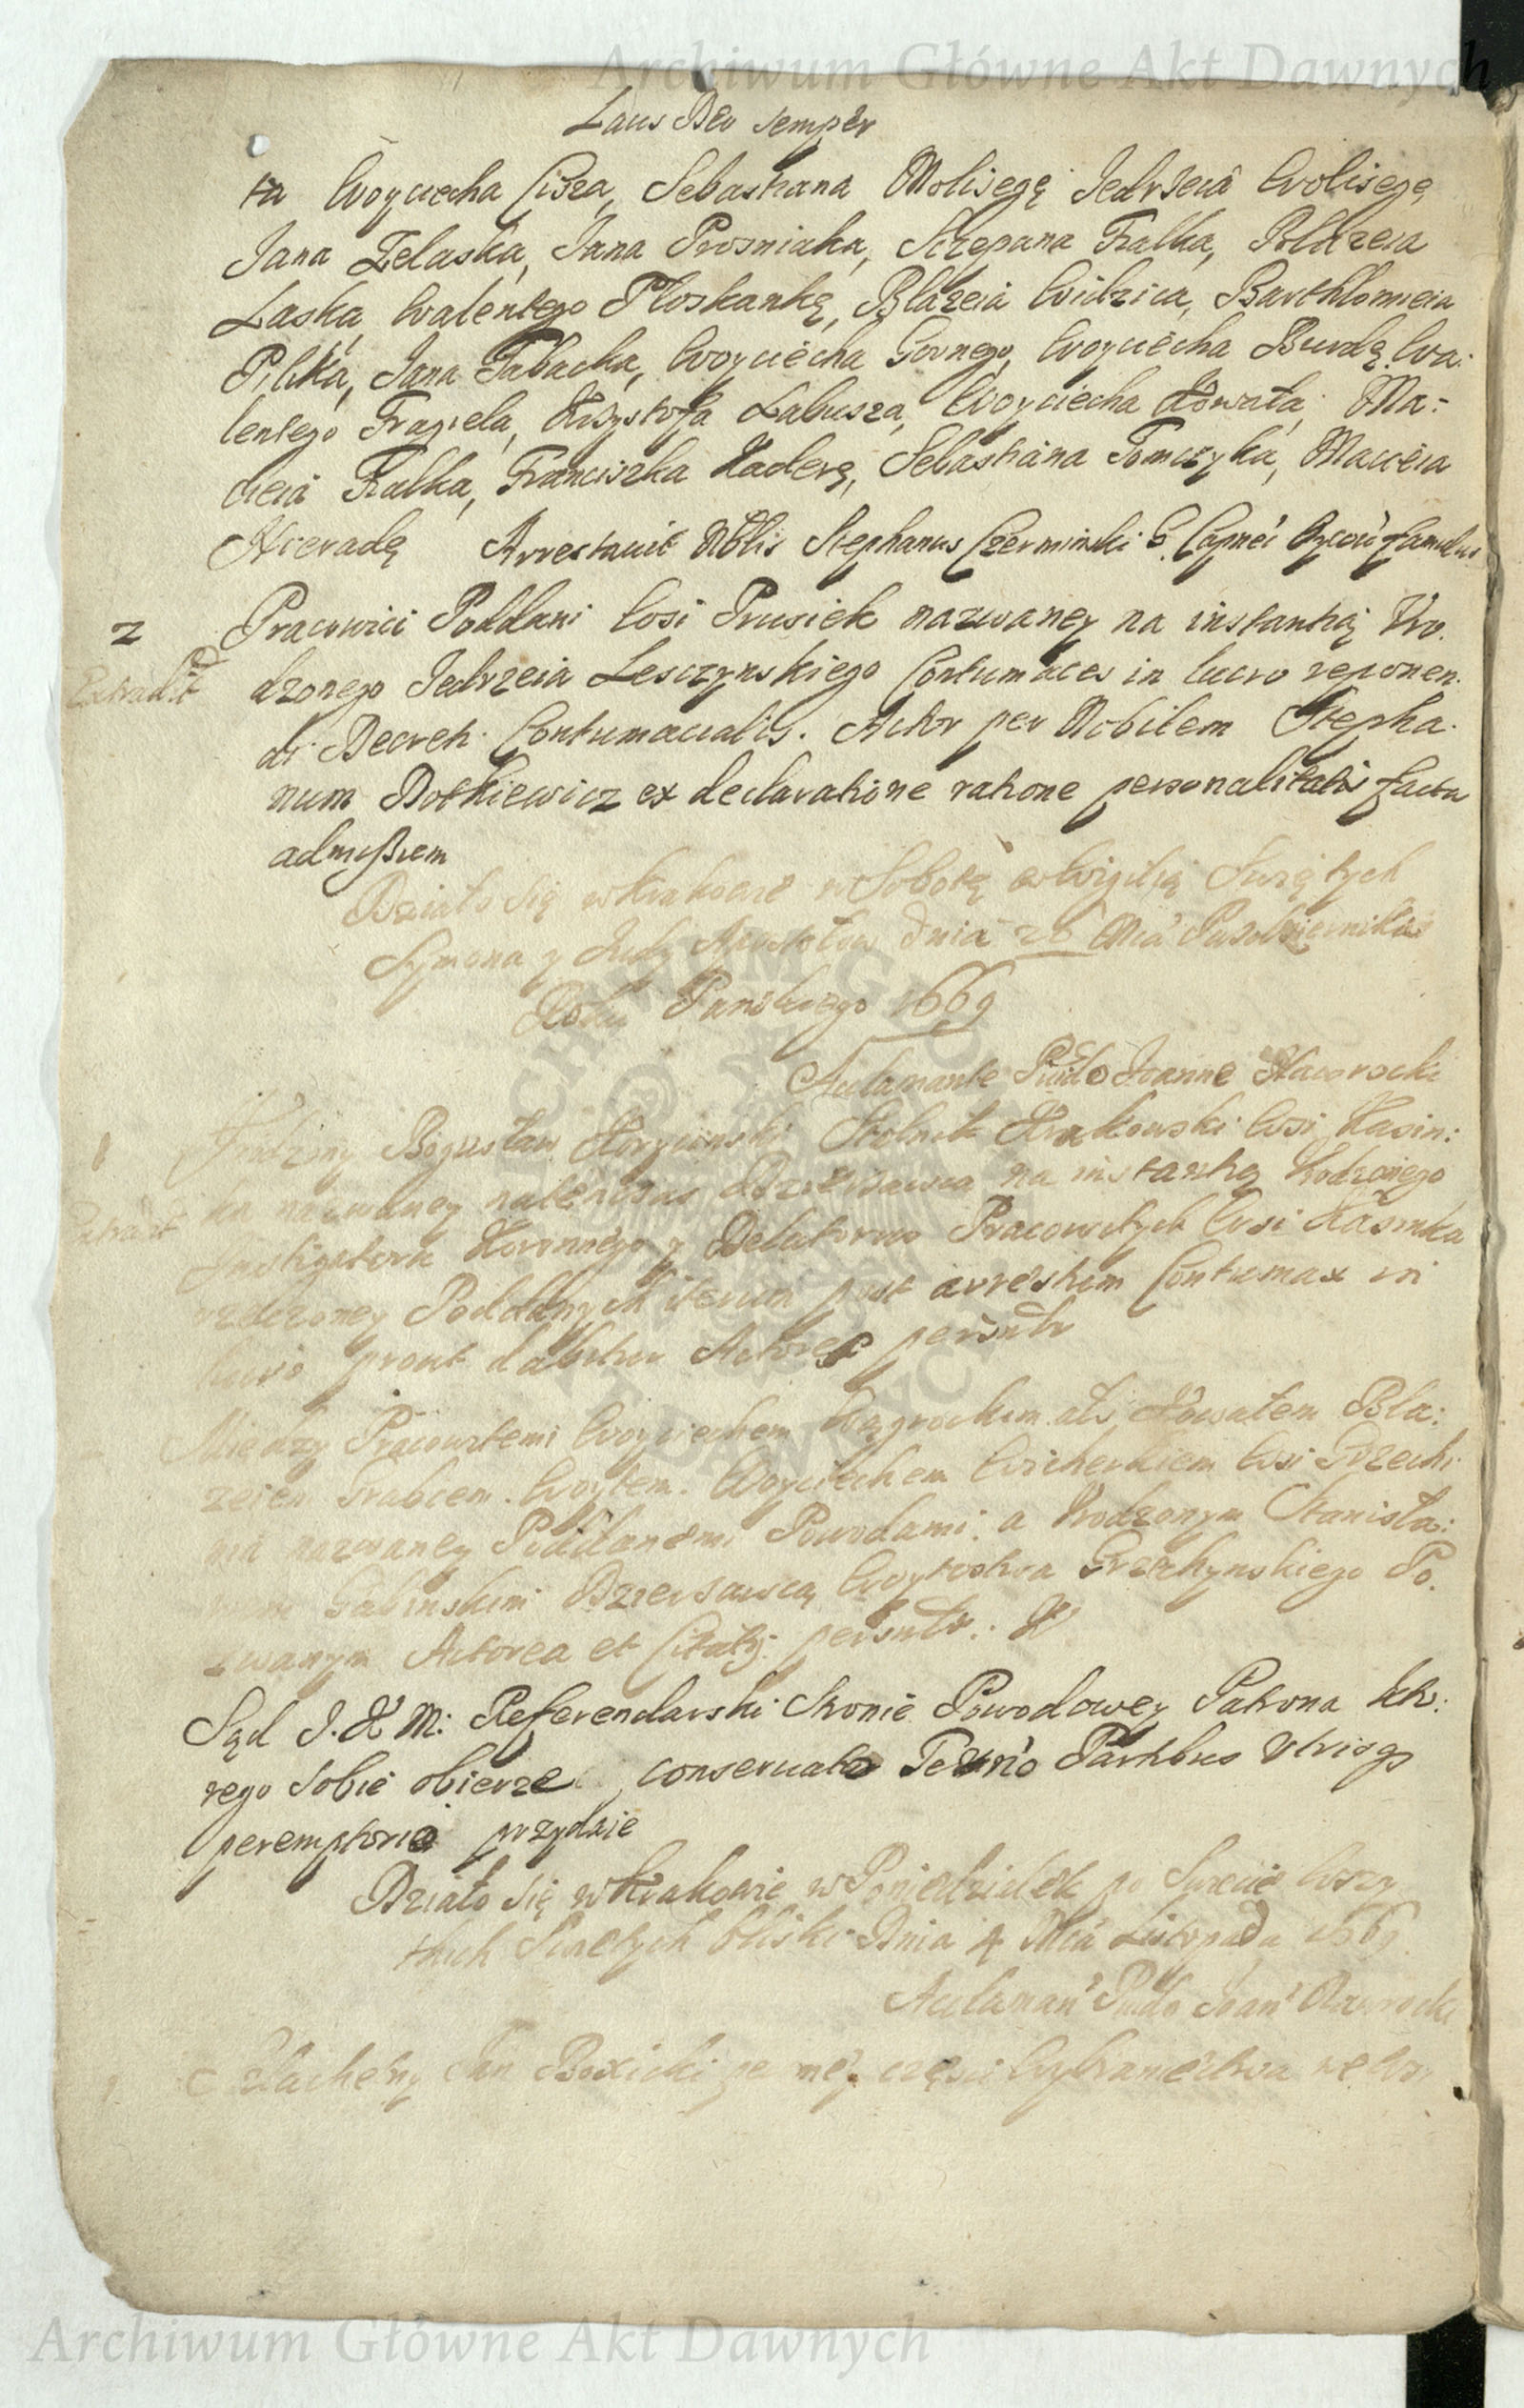 Archiwum Główne Akt Dawnych
Laus Deo semper
ta Woyciecha Cisza, Sebastiana Molisegę Jedrzeia Wolisegę
Jana Zelaska, Jana Prosniaka, Sczepana Frałka, Błazeia
Laska, Walentego Płoskankę, Błazeia Widzica, Barthłomieia
Pilika, Jana Tabacka, Woyciecha Gornego, Woyciecha Burdę, Wa:
lentego Fragiela, Krzysztofa Labusza, Woyciecha Kowala, Ma:
cieia Frałka, Franciszka Kaderę, Sebastiana Tomczyka, Macieia
Arrestauit Nblis Stephanus Czerminski G. famulus
2 Pracowici Poddani Wsi Prusiek nazwaney na instantią Vro.
Extradit dzonego Jedrzeia Lesczynskiego Contumaces in lucro reponen.
di Decreti Contumacialis. Actor per Nobilem Stepha.
num Dotkiewicz ex declaratione ratione personalitatis facta
admissum
Działo się w Krakowie w Sobotę w Wigilią Swiętych
Symona y Judy Apostołow Dnia 26 Mca Pazdziernika
Roku Panskiego 1669
Acclamante Joanne Nawrocki
1 Vrodzony Bogusław Stolnik Krakowski Wsi Kasin:
Extradit ka nazwaney natenczas Dzierzawca na instantią Vrodzonego
Instigatora Koronnego y Delatorow Pracowitych Wsi Kasinka
rzeczoney Poddanych iterum post arrestum Contumax in
lucro prout Actores
Miedzy Pracowitemi Woyciechem als Kowalem Bła:
zeiem Grabcem Woytem. Woyciechem Wicherkiem Wsi Grzechi
nia nazwaney Poddanemi Powodami: a Vrodzonym Stanisła:
wem Gabinskim Dzierzawcą Woytostwa Grzechynskiego Po.
zwanym Actorea et
Sąd J. K M: Referendarski Stronie Powodowey Patrona kto:
rego sobie obierze, conseruato Termino Partibus Vtrisq
peremptorie przydaie
Działo się w Krakowie w Poniedziałek po Swięcie Wszy
tkich Swiętych bliski Dnia 4 Mca Listopada 1669
Acclaman Joan Nawrocki
1 Slachetny Jan
Archiwum Główne Akt Dawnych